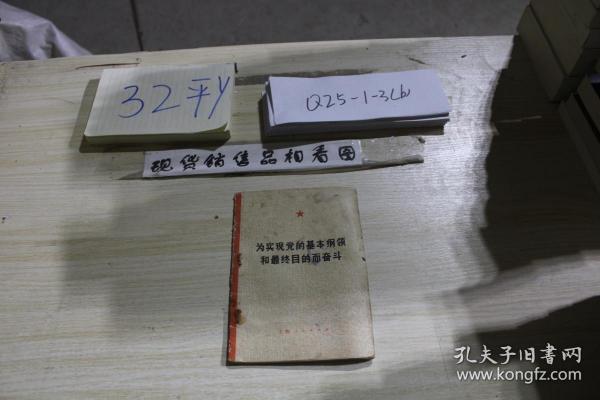 32平y
Q25-1-3Lb
现货销售品相看图
为实现党的基本纲领
和最终目的而奋斗
上海人民出版社
孔夫子旧书网
www.kongfz.com